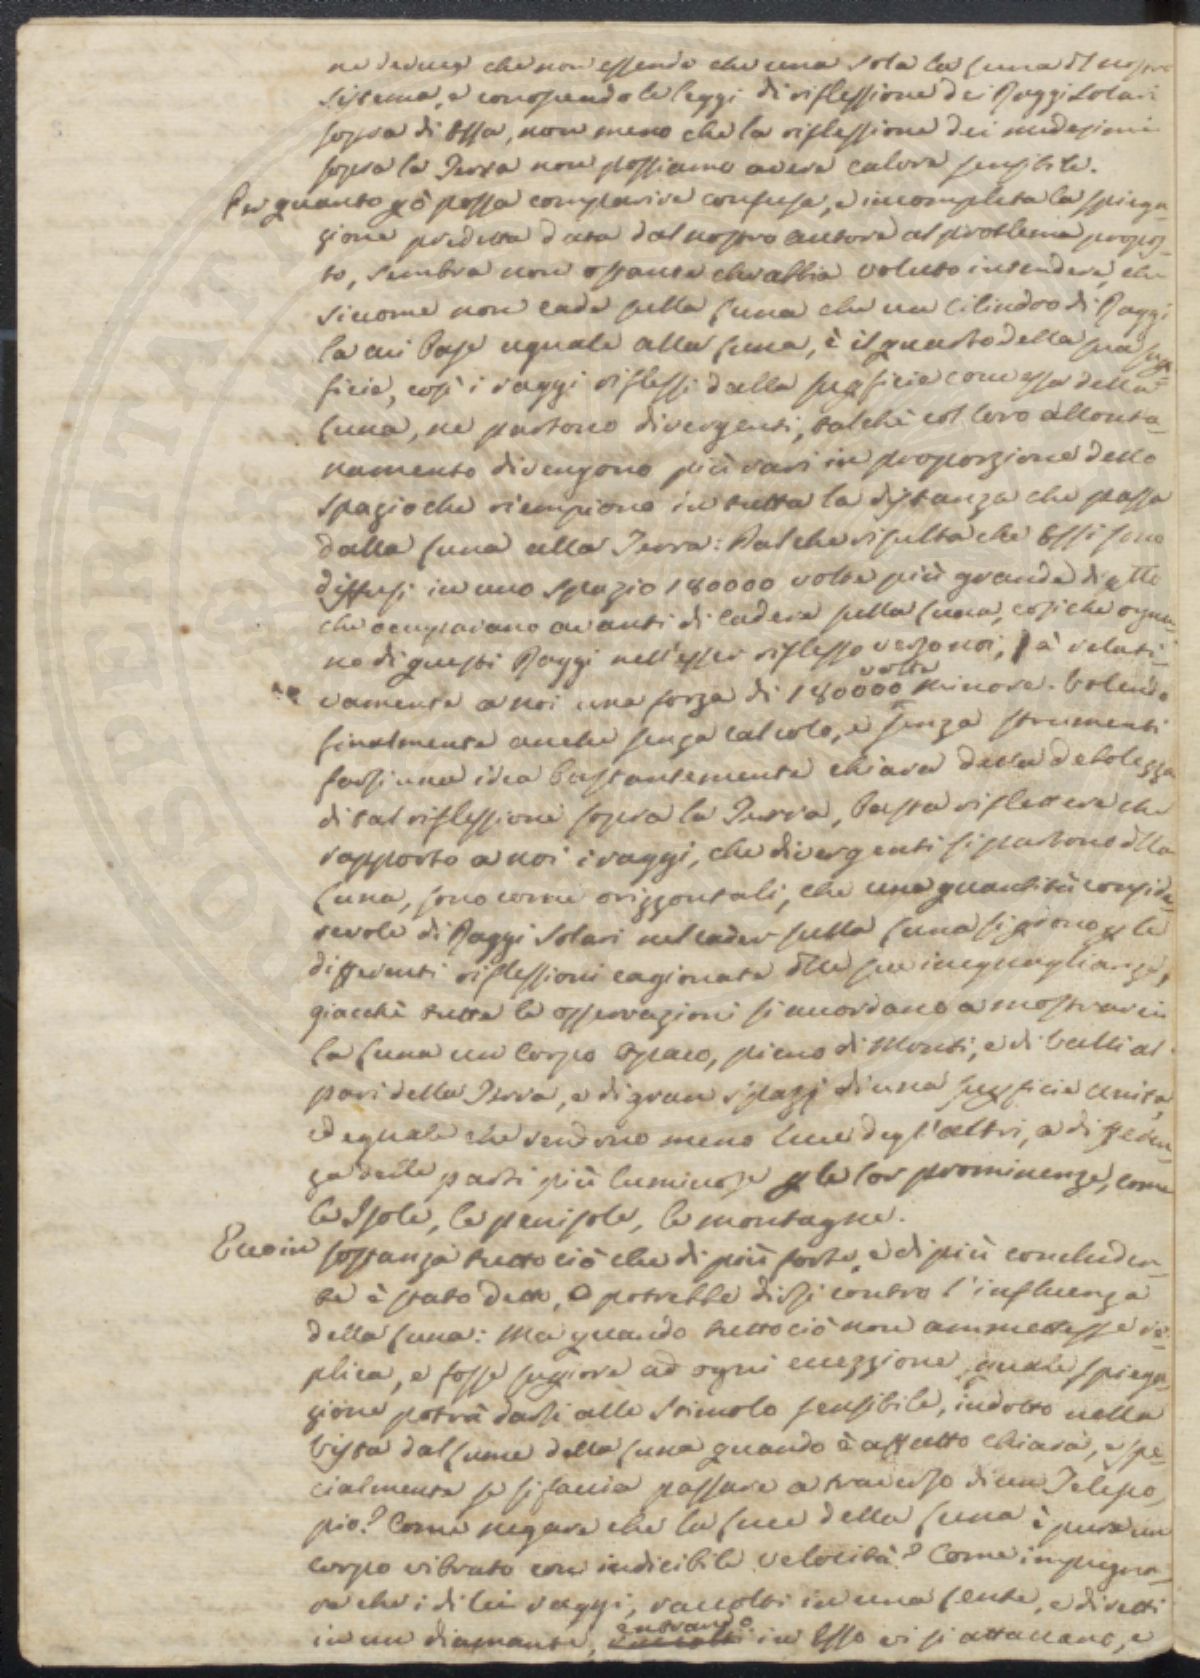 ne deduce che non essendo che una sola la Luna dl nostro
sistema, e conoscendo le leggi di riflessione dei Raggi Solari
sopra di Essa, non meno che la riflessione dei medesimi
sopra la Terra non possiamo avere calore sensibile.
Per quanto pò possa comparire confusa, e incompleta la spiega-
zione predetta data dal nostro autore al problema propos-
to, sembra non ostante che abbia voluto intendere, che
siccome non cade sulla Luna che un Cilindro di Raggi
la cui Base uguale alla Luna, è il quarto della sua sup-
ficie, così i raggi riflessi dalla supficie convessa della
Luna, ne partono divergenti, talchè col loro allonta-
namento divengono più rari in proporzione dello
spazio che riempiono in tutta la distanza che passa
dalla Luna alla Terra: Dal che risulta che Essi sono
diffusi in uno spazio 180000 volte più grande di qllo
che occupavano avanti di cadere sulla Luna, cosichè ognu-
no di questi Raggi nell'esser riflesso verso noi, à relati-
vamente a noi una forza di 180000 volte minore. Volendo
finalmente anche senza calcolo, e senza strumenti
farsi una idea bastantemente chiara della debolezza
di tal riflessione sopra la Terra, basta riflettere che
rapporto a noi i raggi, che divergenti si partono dlla
Luna, sono come orizzontali, che una quantità conside-
revole di Raggi Solari nel cader sulla Luna si pdono p le
differenti riflessioni cagionate dlle sue inequaglianze,
giacchè tutte le osservazioni si accordano a mostrarci
la Luna un Corpo Opaco, pieno di Monti, e di Valli al
pari della Terra, e di gran spazj di una supficie unita,
ed eguale che rendono meno luce degl'altri, a differen-
za delle parti più luminose p le lor prominenze, come
le Isole, le penisole, le montagne.
Ecco in sostanza tutto ciò che di più forte, e di più concluden-
te è stato detto, o potrebbe dirsi contro l'influenza
della Luna: Ma quando tutto ciò non ammettesse re-
plica, e fosse supiore ad ogni eccezzione, quale spiega-
zione potrà darsi allo stimolo sensibile, indotto nella
vista dal Lume della Luna quando è affatto chiara, e spe-
cialmente se si faccia passare a traverso di un Telesco-
pio? Come negare che la Luce della Luna è pure un
corpo vibrato con indicibile velocità? Come impugna-
re che i di lui raggi, raccolti in una Lente, e diretti
in un diamante, entrando in Esso vi si attaccano, e